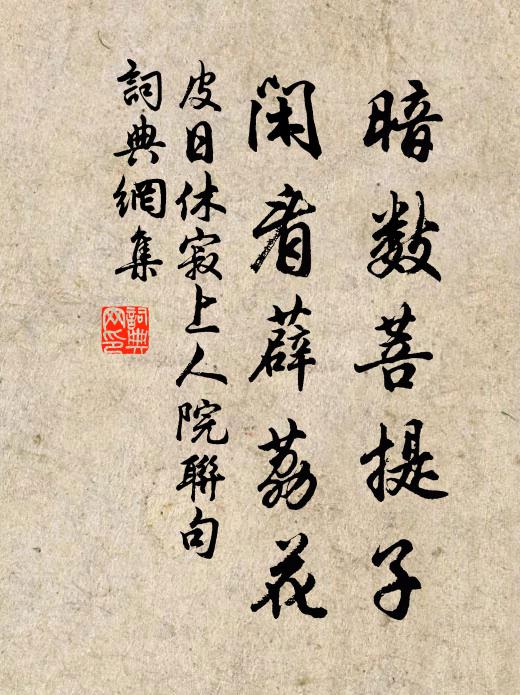 暗数菩提子
閑看薜荔花
皮日休寂上人院聯句
詞典網集
詞典
网印